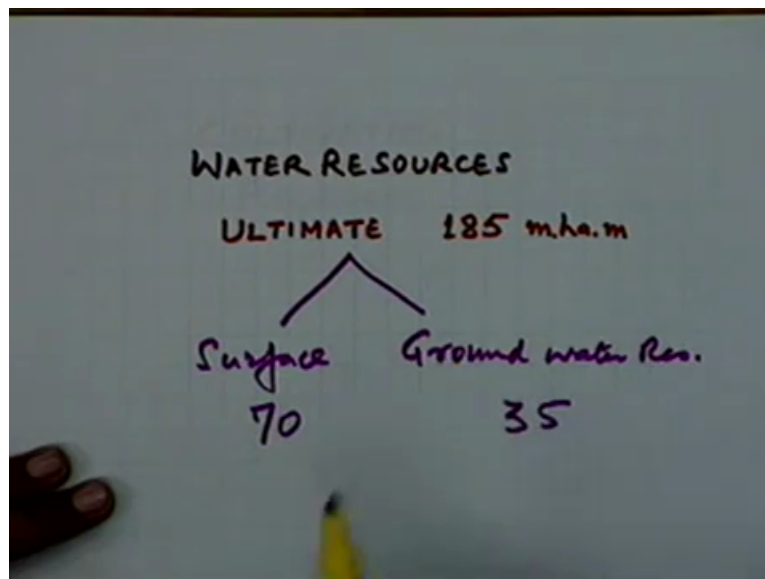 WATER RESOURCES
ULTIMATE 185 m.ha.m
Surface Ground water Res.
70 35